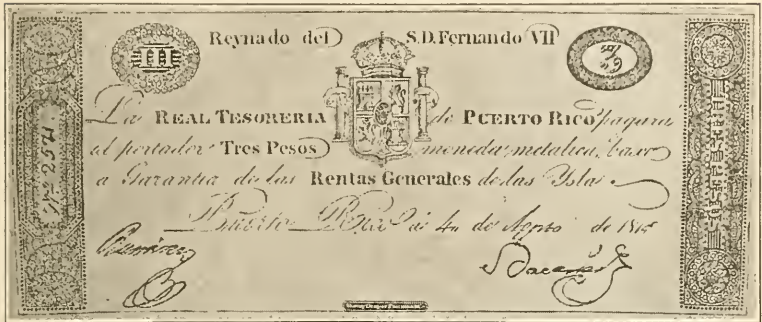 Reynado del S.D. Fernando VII
III
La REAL TESORERIA de PUERTO RICO pagará
al portador Tres Pesos moneda metalica, baxo
a Garantia de las Rentas Generales de las Ysla
Puerto Rico á 4 de Agosto de
Ramirez
Nº 2571